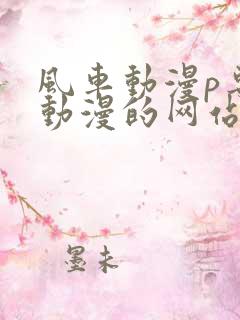 風車動漫p
動漫的网佔
墨未